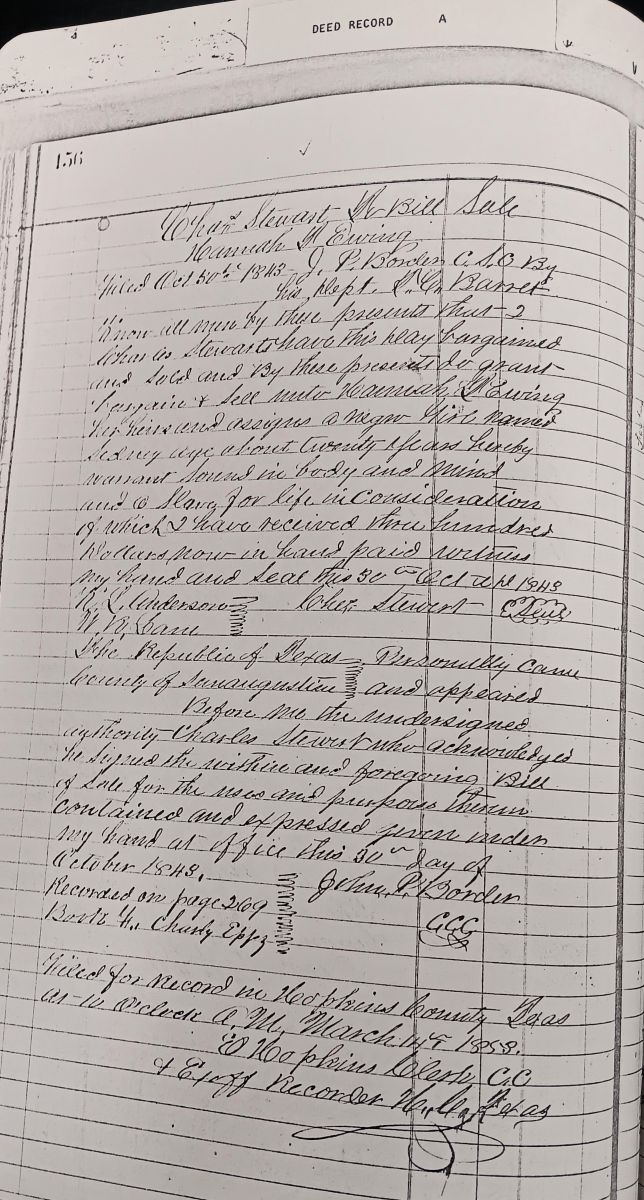 DEED RECORD A
156
Chas Stewart To Bill Sale
Hannah Ewing
Filed Oct 30th 1843 J. P. Borden By
his Dept. Barret
Know all men by these presents that I
Charles Stewart have this day bargained
and Sold and By these presents do grant
bargain & Sell unto Hannah Ewing
her heirs and assigns a negro Girl named
Sidney age about twenty years hereby
warrant Sound in body and mind
and a Slave for life in Consideration
of which I have received three hundred
Dollars now in hand paid witness
my hand and Seal this 30th Oct 1843
Anderson Chas Stewart Seal
The Republic of Texas Personally Came
County of Sanaugustine and appeared
Before me the undersigned
authority Charles Stewart who acknowledged
he Signed the within and foregoing Bill
of Sale for the uses and purposes therein
Contained and expressed given under
my hand at office this 30th day of
October 1843. John P. Borden
Recorded on page 269
Book
Filed for Record in Hopkins County Texas
at 10 Oclock A.M. March 14th
E Hopkins Clerk C.C
& Exoff Recorder H. Co Texas